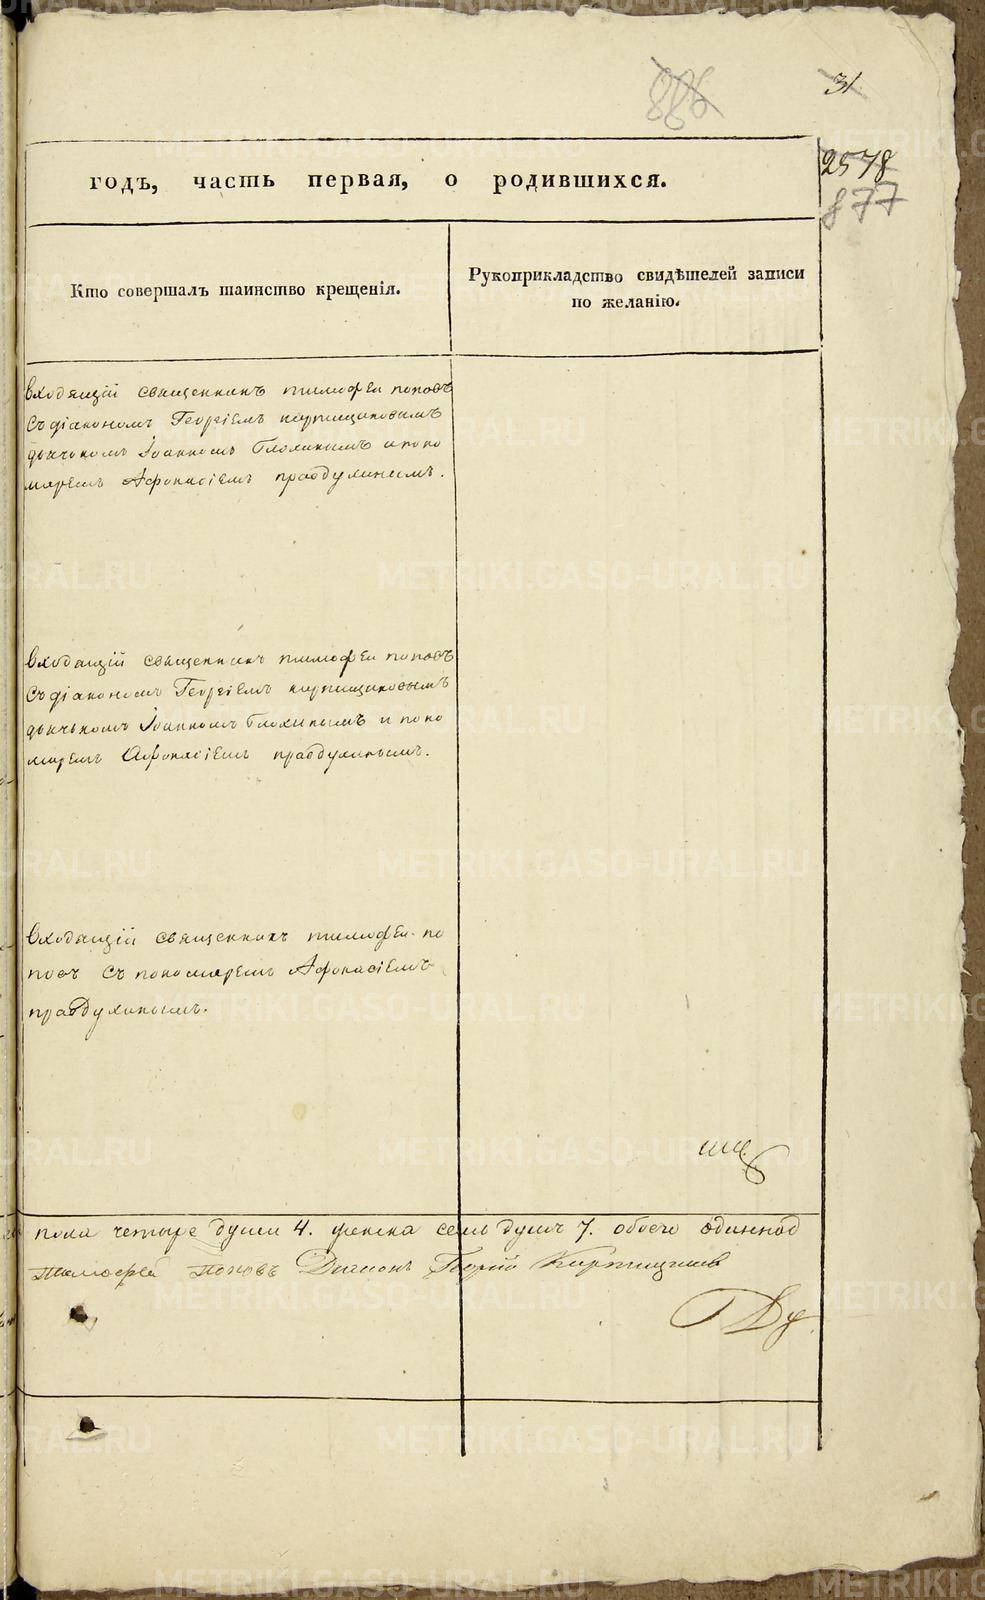 886
31
2578
877
годъ, часть первая, о родившихся.
Кто совершалъ таинство крещенія.
Рукоприкладство свидѣтелей записи
по желанію.
входящій священникъ тимофеи поповъ
съ діакономъ Георгіемъ кирпищиковымъ
дьячкомъ Іоанномъ Глохинымъ и поно
маремъ Афонасіемъ правдухинымъ.
входащій священникъ тимофеи поповъ
съ діакономъ Георгіемъ кирпищиковымъ
дьячкомъ Іоанномъ Глохинымъ и поно
маремъ Афонасіемъ правдухинымъ.
входящій священникъ тимофеи по
повъ съ пономаремъ Афонасіемъ
правдухинымъ.
пола четыре души 4. женска семь душъ 7. обоего одиннад
Тимофей Поповъ Діаконъ Георгій
METRIKI.GASO-URAL.RU